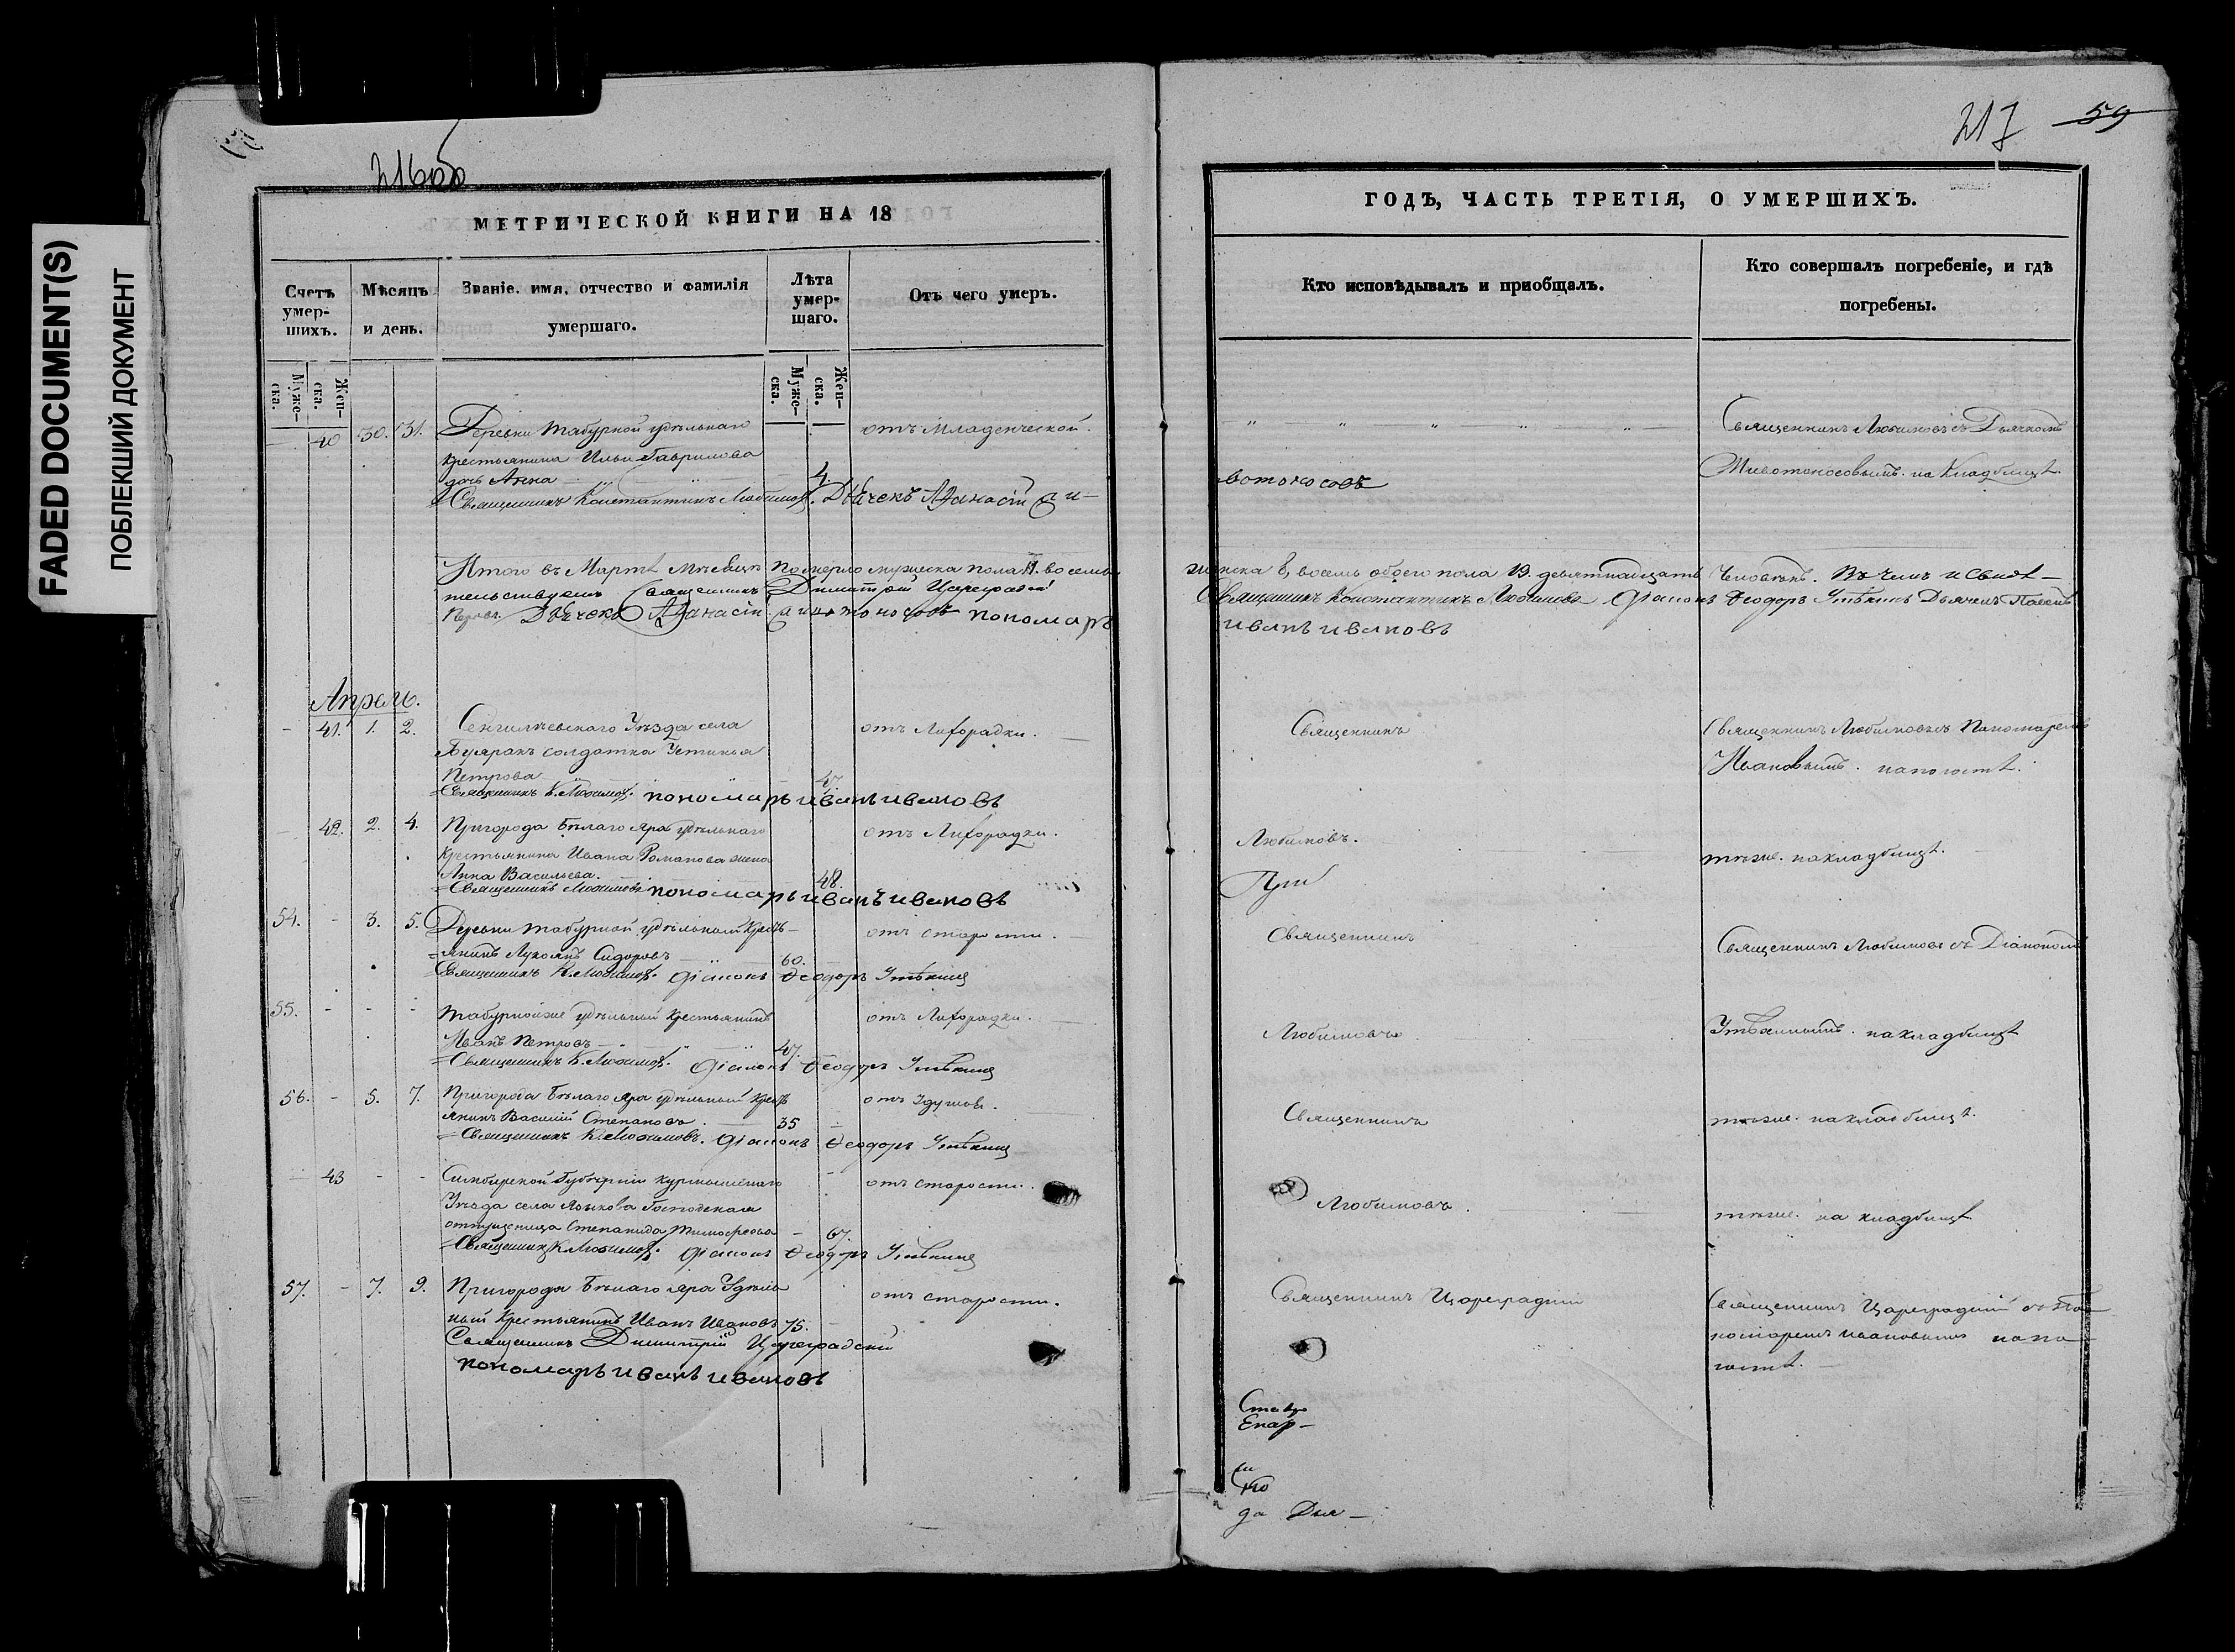 FADED DOCUMENT(S)
ПОБЛЕКШИЙ ДОКУМЕНТ
216об
МЕТРИЧЕСКОЙ КНИГИ НА 18
Счетъ умер-шихъ.
Мѣсяцъ и день.
Званіе, имя, отчество и фамилія умершаго.
Лѣта умер-шаго.
Отъ чего умеръ.
Муже-ска.
Жен-ска.
Муже-ска.
Жен-ска.
40 30. 31. Деревни Табурной удѣльнаго отъ Младенческой.
крестьянина Ильи Гаврилова
дочь Анна 4
Священникъ Константинъ Любимов. Дьячекъ Афанасій
Итого въ Мартѣ Мѣсяцѣ померло мужеска пола 11.
тельствуемъ Священникъ Димитрій Цареградскій
Дьячекъ Афанасій пономарь
Апрель.
- 41. 1. 2. Сенгилѣевскаго Уѣзда села отъ Лихорадки.
солдатка Устинья
Петрова 47
Священникъ К. Любимов. пономарь иванъ ивановъ
42. 2. 4. Пригорода Бѣлаго Яра удѣльнаго отъ Лихорадки.
крестьянина Ивана Романова жена
Анна Васильева. 48.
Священникъ Любимовъ пономарь иванъ ивановъ
54. - 3. 5. Деревни Табурной удѣльный крест- отъ старости.
янинъ Сидоровъ 60.
Священникъ К. Любимов. Діаконъ Феодоръ Утѣхинъ
55. - - - Табурной же удѣльный крестьянинъ отъ Лихорадки.
Иванъ Петровъ 47.
Священникъ К. Любимов. Діаконъ Феодоръ Утѣхинъ
56. - 5. 7. Пригорода Бѣлаго Яра удѣльный крест отъ Удушья.
янинъ Василій Степановъ 35
Священникъ К. Любимовъ. Діаконъ Феодоръ Утѣхинъ
43 - - Симбирской Губерніи Курмышскаго отъ старости.
Уѣзда села Языкова Господская
отпущеница Степанида Тимофеева 67.
Священникъ К. Любимов. Діаконъ Феодоръ Утѣхинъ
57. - 7. 9. Пригорода Бѣлаго Яра Удѣль отъ старости.
ный Крестьянинъ Иванъ Ивановъ 75.
Священникъ Димитрій Цареградскій
пономарь иванъ ивановъ
217 59
ГОДЪ, ЧАСТЬ ТРЕТІЯ, О УМЕРШИХЪ.
Кто исповѣдывалъ и пріобщалъ.
Кто совершалъ погребеніе, и гдѣ погребены.
Священникъ Любимовъ съ Дьячкомъ
Животоносовымъ. на Кладбищѣ
вотоносовъ
женска 8, восемь обоего пола 19. девятнадцать Человѣкъ. Въ чемъ и Свидѣ-
Священникъ Константинъ Любимовъ Діаконъ Феодоръ Утѣхинъ Дьячекъ
иванъ ивановъ
Священникъ
Священникъ Любимовъ съ Пономаремъ
Ивановымъ. на погостѣ.
Любимовъ.
тѣже. на кладбищѣ.
Священникъ
Священникъ Любимовъ съ Діакономъ
Любимовъ
Утѣхинымъ. на кладбищѣ
Священникъ
тѣже. на кладбищѣ.
Любимовъ
тѣже. на кладбищѣ
Священникъ Цареградскій
Священникъ Цареградскій съ По
номаремъ Ивановымъ на по
гостѣ.
Ставр
Епар-
да Дья-